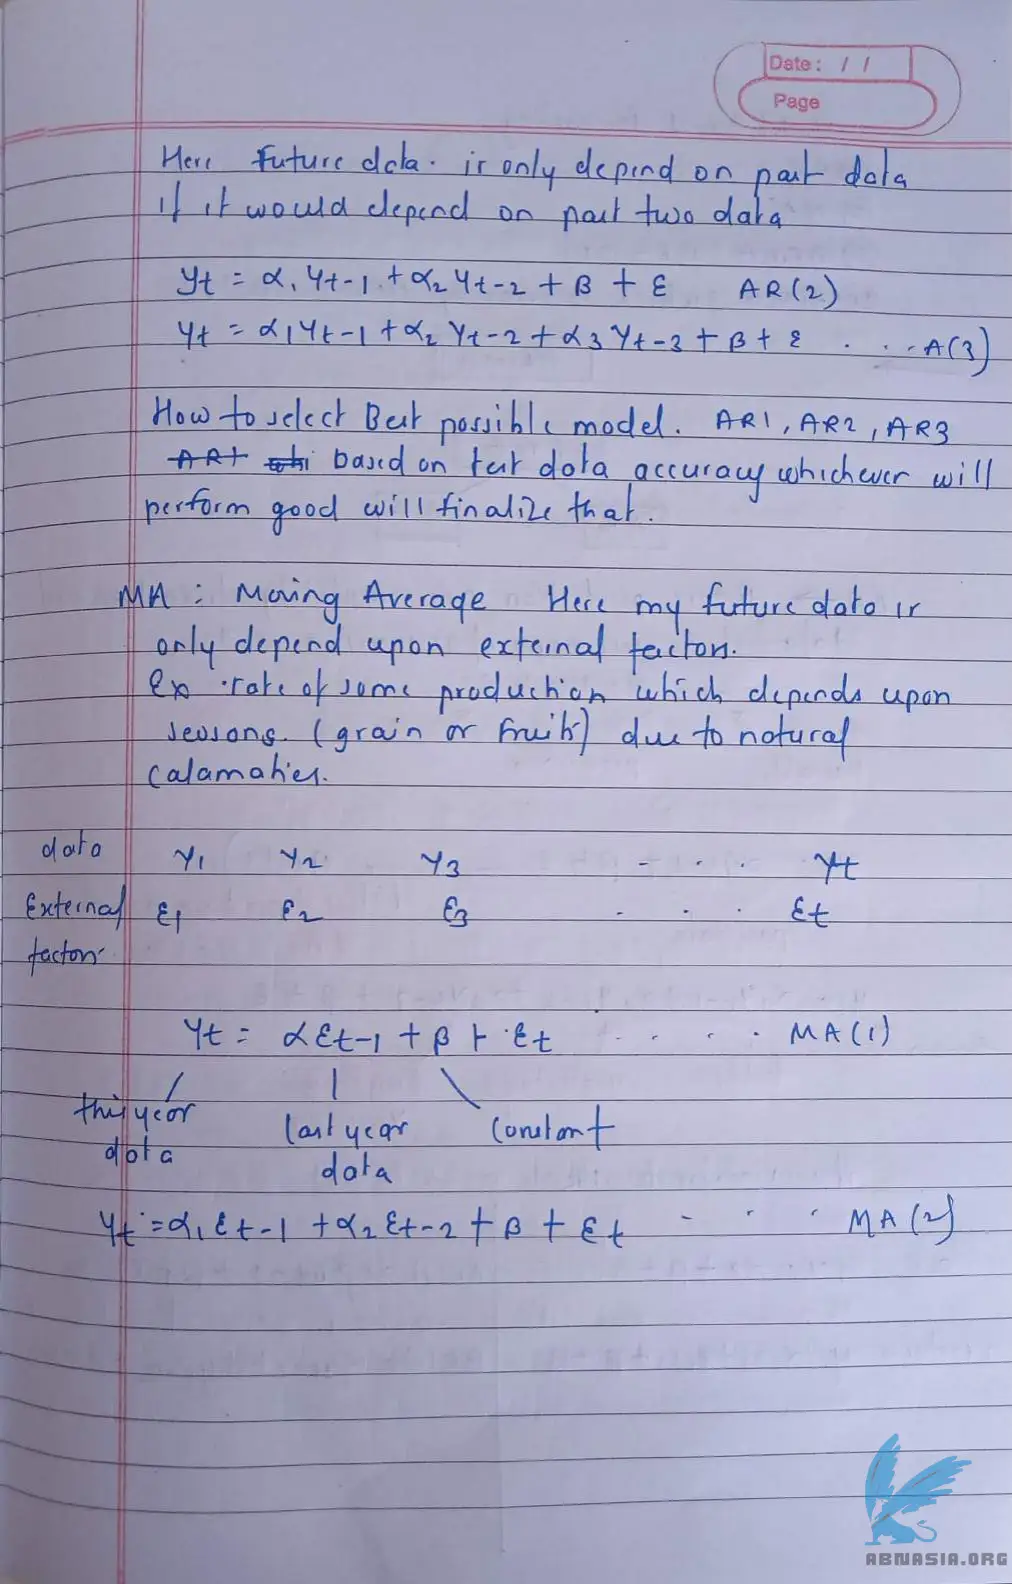 Date: / /
Page
Here future data is only depend on past data
If it would depend on past two data
yt = α1 Yt-1 + α2 Yt-2 + β + ε AR(2)
Yt = α1Yt-1 + α2 Yt-2 + α3 Yt-3 + β + ε . . . A(3)
How to select Best possible model. AR1, AR2, AR3
based on test data accuracy whichever will
perform good will finalize that.
MA: Moving Average Here my future data is
only depend upon external factors.
Ex rate of some production which depends upon
seasons. (grain or fruits) due to natural
calamaties.
data Y1 Y2 Y3 - . . Yt
External ε1 ε2 ε3 . . . εt
factors
Yt = αεt-1 + β + εt . . . MA(1)
this year last year constant
data data
Yt = α1 εt-1 + α2 εt-2 + β + εt - . . MA(2)
ABNASIA.ORG